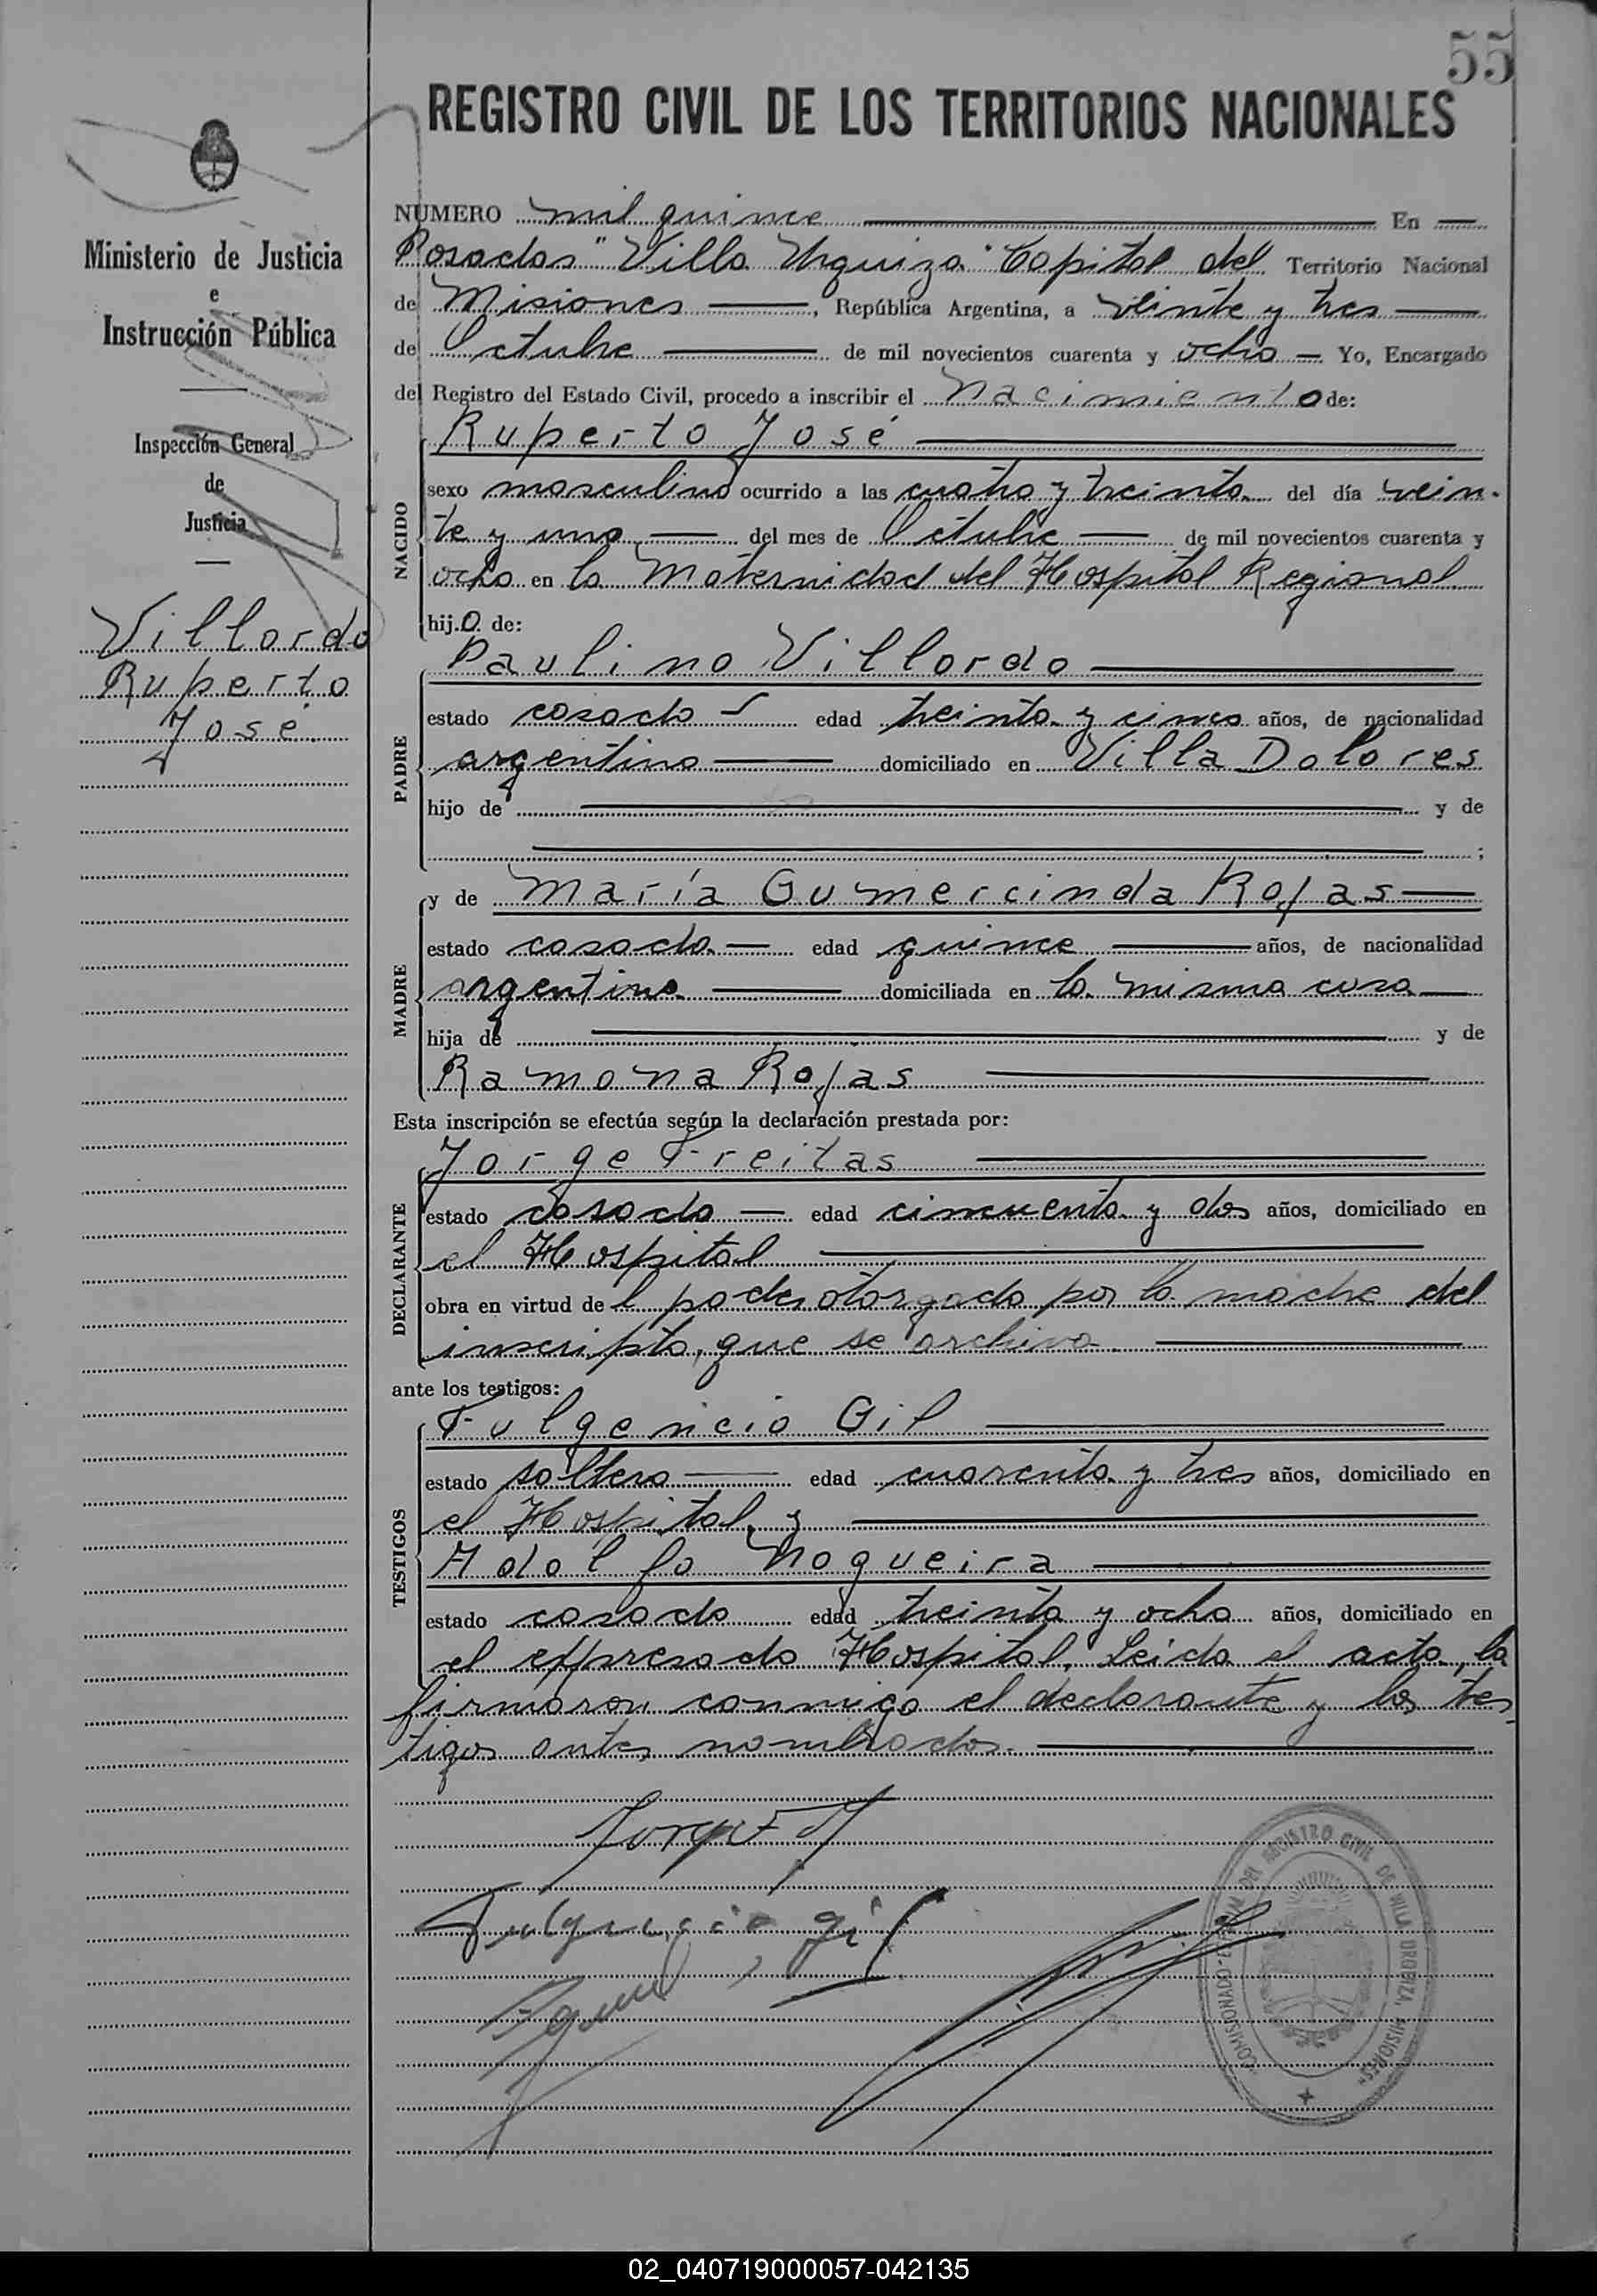 55
REGISTRO CIVIL DE LOS TERRITORIOS NACIONALES
Ministerio de Justicia
e
Instrucción Pública
Inspección General
de
Justicia
Villordo
Ruperto
José.
NUMERO mil quince En
Posadas "Villa Urquiza" Capital del Territorio Nacional
de Misiones, República Argentina, a veinte y tres
de Octubre de mil novecientos cuarenta y ocho Yo, Encargado
del Registro del Estado Civil, procedo a inscribir el nacimiento de:
Ruperto José
NACIDO
sexo masculino ocurrido a las cuatro y treinta del día vein-
te y uno del mes de Octubre de mil novecientos cuarenta y
ocho en la Maternidad del Hospital Regional
hijo de:
Paulino Villordo
PADRE
estado casado edad treinta y cinco años, de nacionalidad
argentina domiciliado en Villa Dolores
hijo de y de
;
y de María Gumercinda Rojas
MADRE
estado casada edad quince años, de nacionalidad
argentina domiciliada en la misma casa
hija de y de
Ramona Rojas
Esta inscripción se efectúa según la declaración prestada por:
Jorge Freitas
DECLARANTE
estado casado edad cincuenta y dos años, domiciliado en
el Hospital
obra en virtud del poder otorgado por la madre del
inscripto, que se archiva
ante los testigos:
Fulgencio Gil
TESTIGOS
estado soltero edad cuarenta y tres años, domiciliado en
el Hospital, y
Adolfo Nogueira
estado casado edad treinta y ocho años, domiciliado en
el expresado Hospital. Leída el acta, la
firmaron conmigo el declarante y los tes-
tigos antes nombrados.
Fulgencio gil
COMISIONADO ESPECIAL DEL REGISTRO CIVIL DE VILLA URQUIZA, MISIONES
02_040719000057-042135